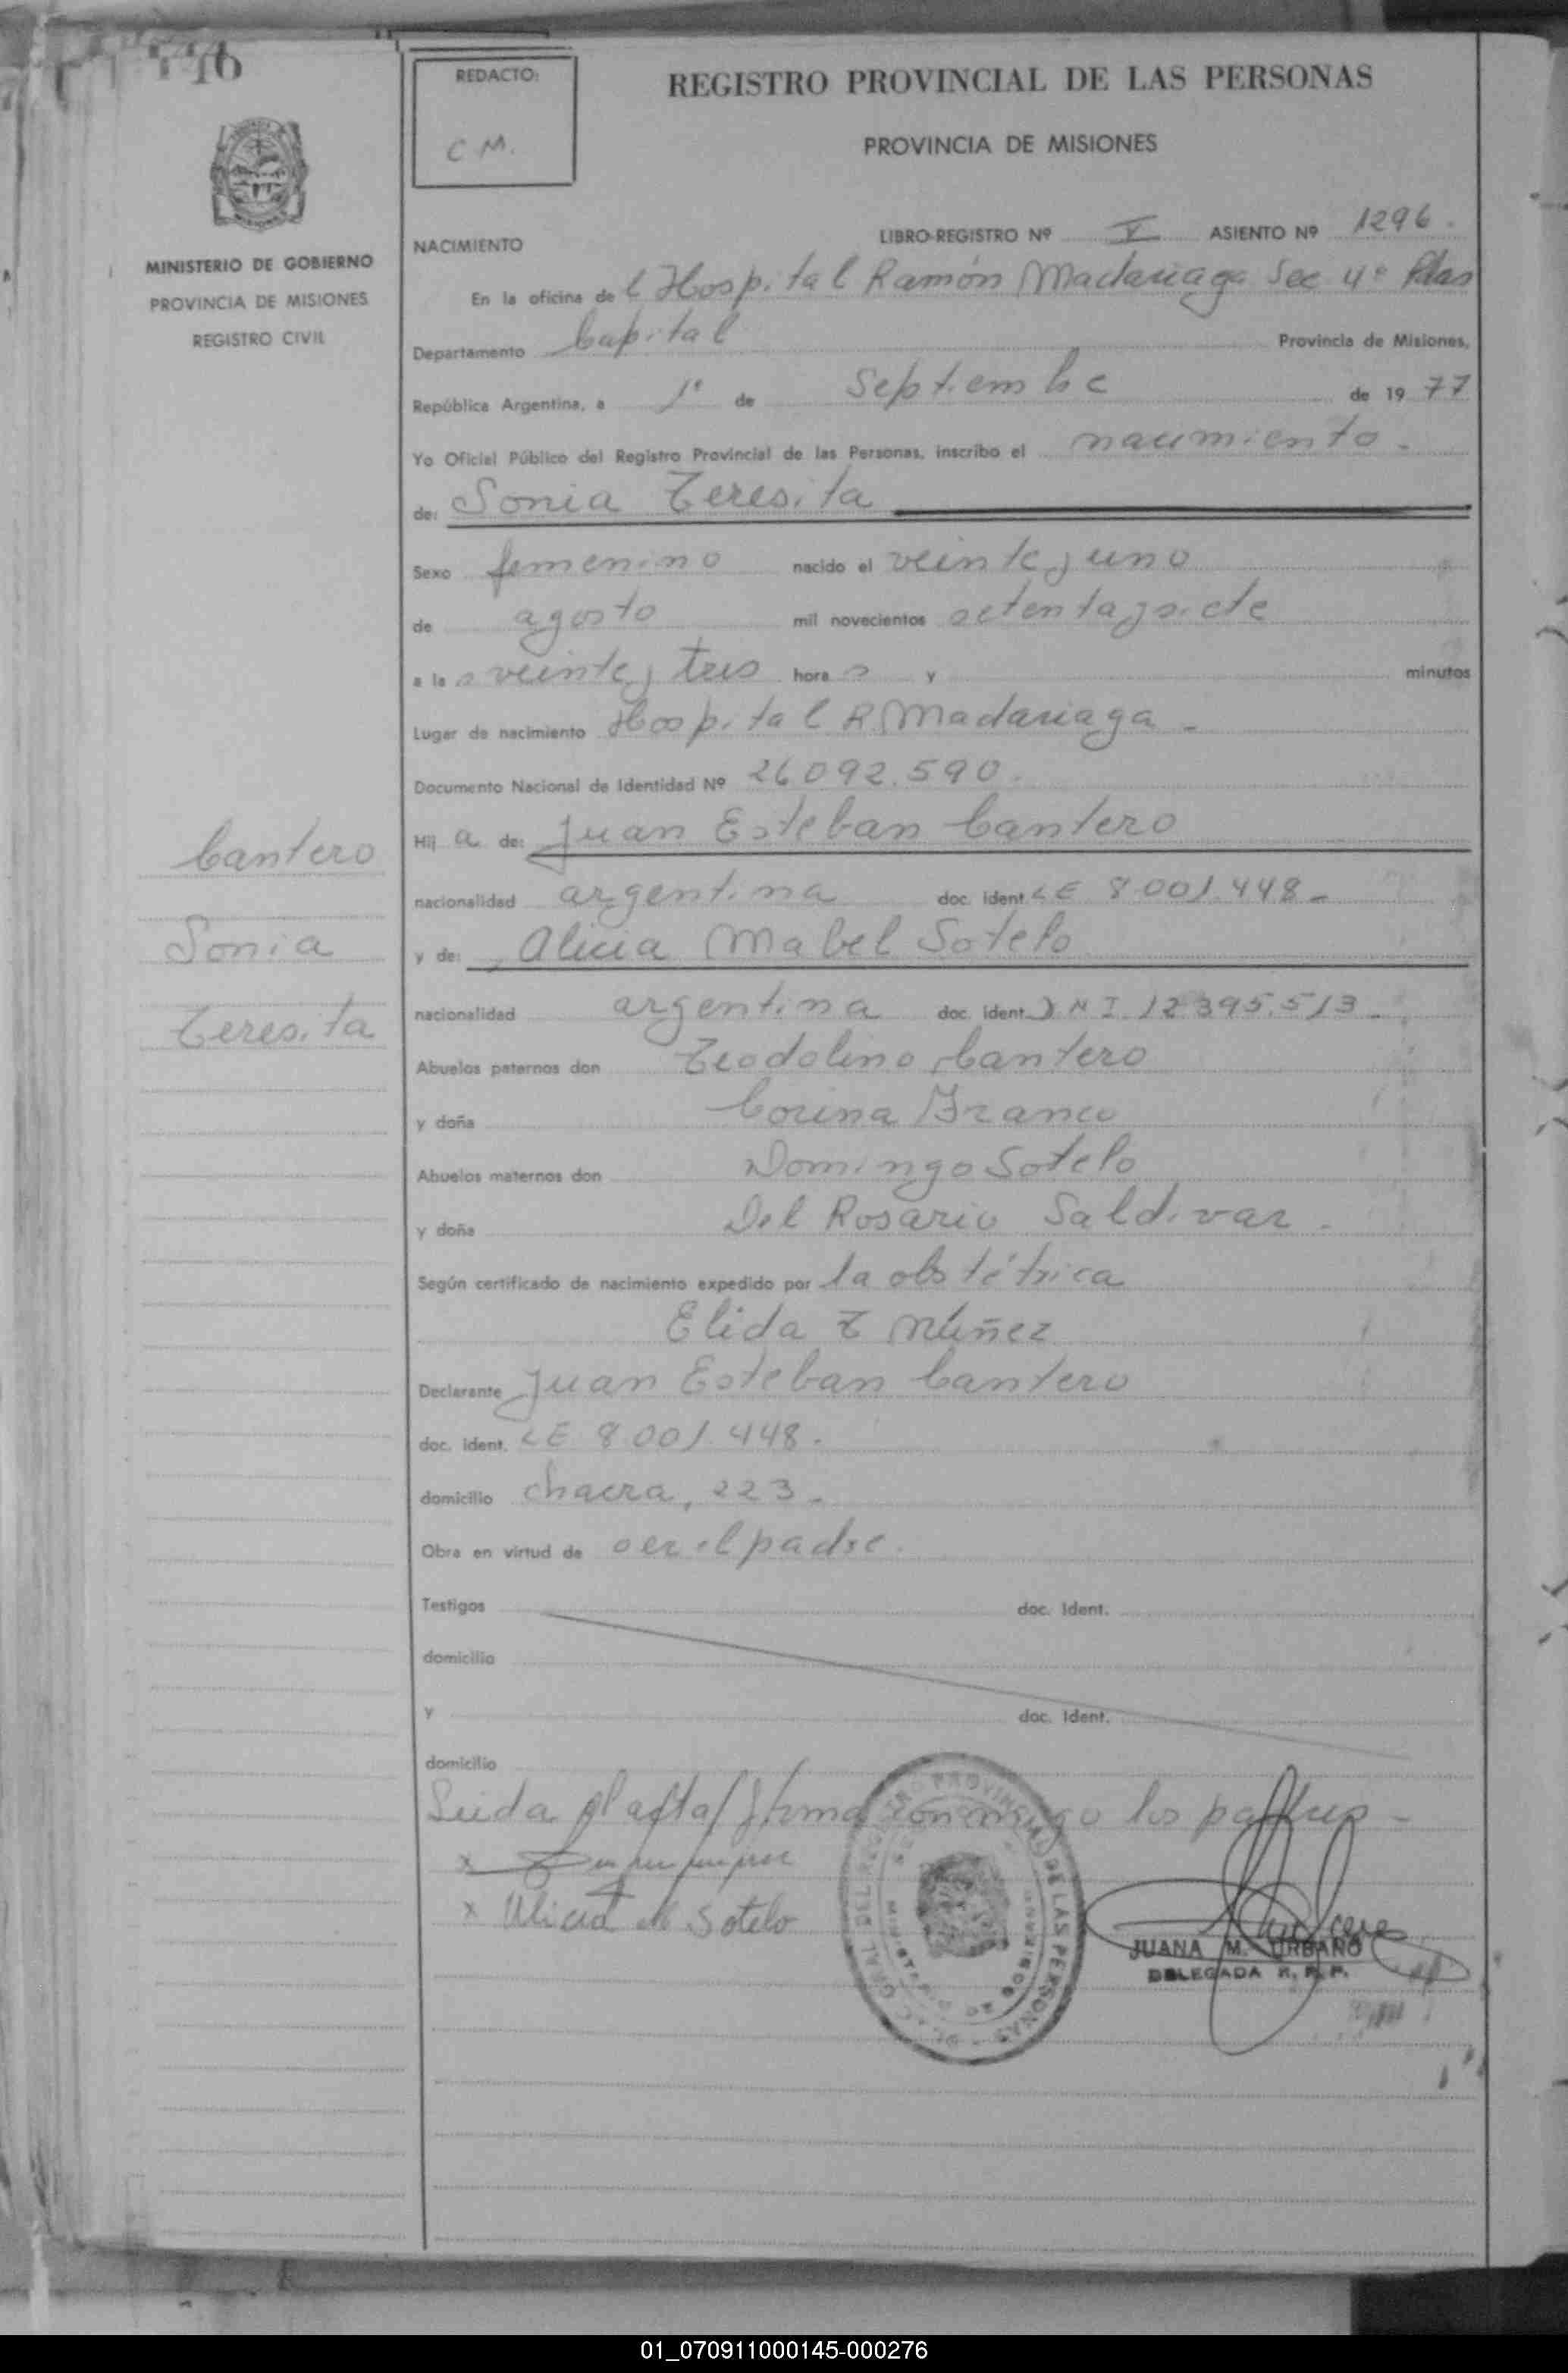 REDACTO:
C M.
REGISTRO PROVINCIAL DE LAS PERSONAS
PROVINCIA DE MISIONES
MINISTERIO DE GOBIERNO
PROVINCIA DE MISIONES
REGISTRO CIVIL
NACIMIENTO
LIBRO-REGISTRO Nº V ASIENTO Nº 1296.
En la oficina de l Hospital Ramón Madariaga Sec 4º Pdas
Departamento Capital Provincia de Misiones,
República Argentina, a 1º de Septiembe de 19 77
Yo Oficial Público del Registro Provincial de las Personas, inscribo el nacimiento.
de: Sonia Teresita
Sexo femenino nacido el veinte y uno
de agosto mil novecientos setenta y siete
a la s veinte y tres hora s y minutos
Lugar de nacimiento Hospital R. Madariaga -
Documento Nacional de Identidad Nº 26092.590.
Hij a de: Juan Esteban Cantero
nacionalidad argentina doc. ident. LE 8001.448 -
y de: Alicia Mabel Sotelo
nacionalidad argentina doc. ident. DNI 12395.513 -
Abuelos paternos don Teodolino Cantero
y doña Corina Branco
Abuelos maternos don Domingo Sotelo
y doña Del Rosario Saldivar.
Según certificado de nacimiento expedido por la obstétrica
Elida T Núñez
Declarante Juan Esteban Cantero
doc. ident. LE 8001.448.
domicilio chacra, 223 -
Obra en virtud de ser el padre.
Testigos doc. Ident.
domicilio
y doc. Ident.
domicilio
Leida el acta firma conmigo los padres -
x
x Alicia M Sotelo
JUANA M. URBANO
DELEGADA R. P. P.
Cantero
Sonia
Teresita
01_070911000145-000276